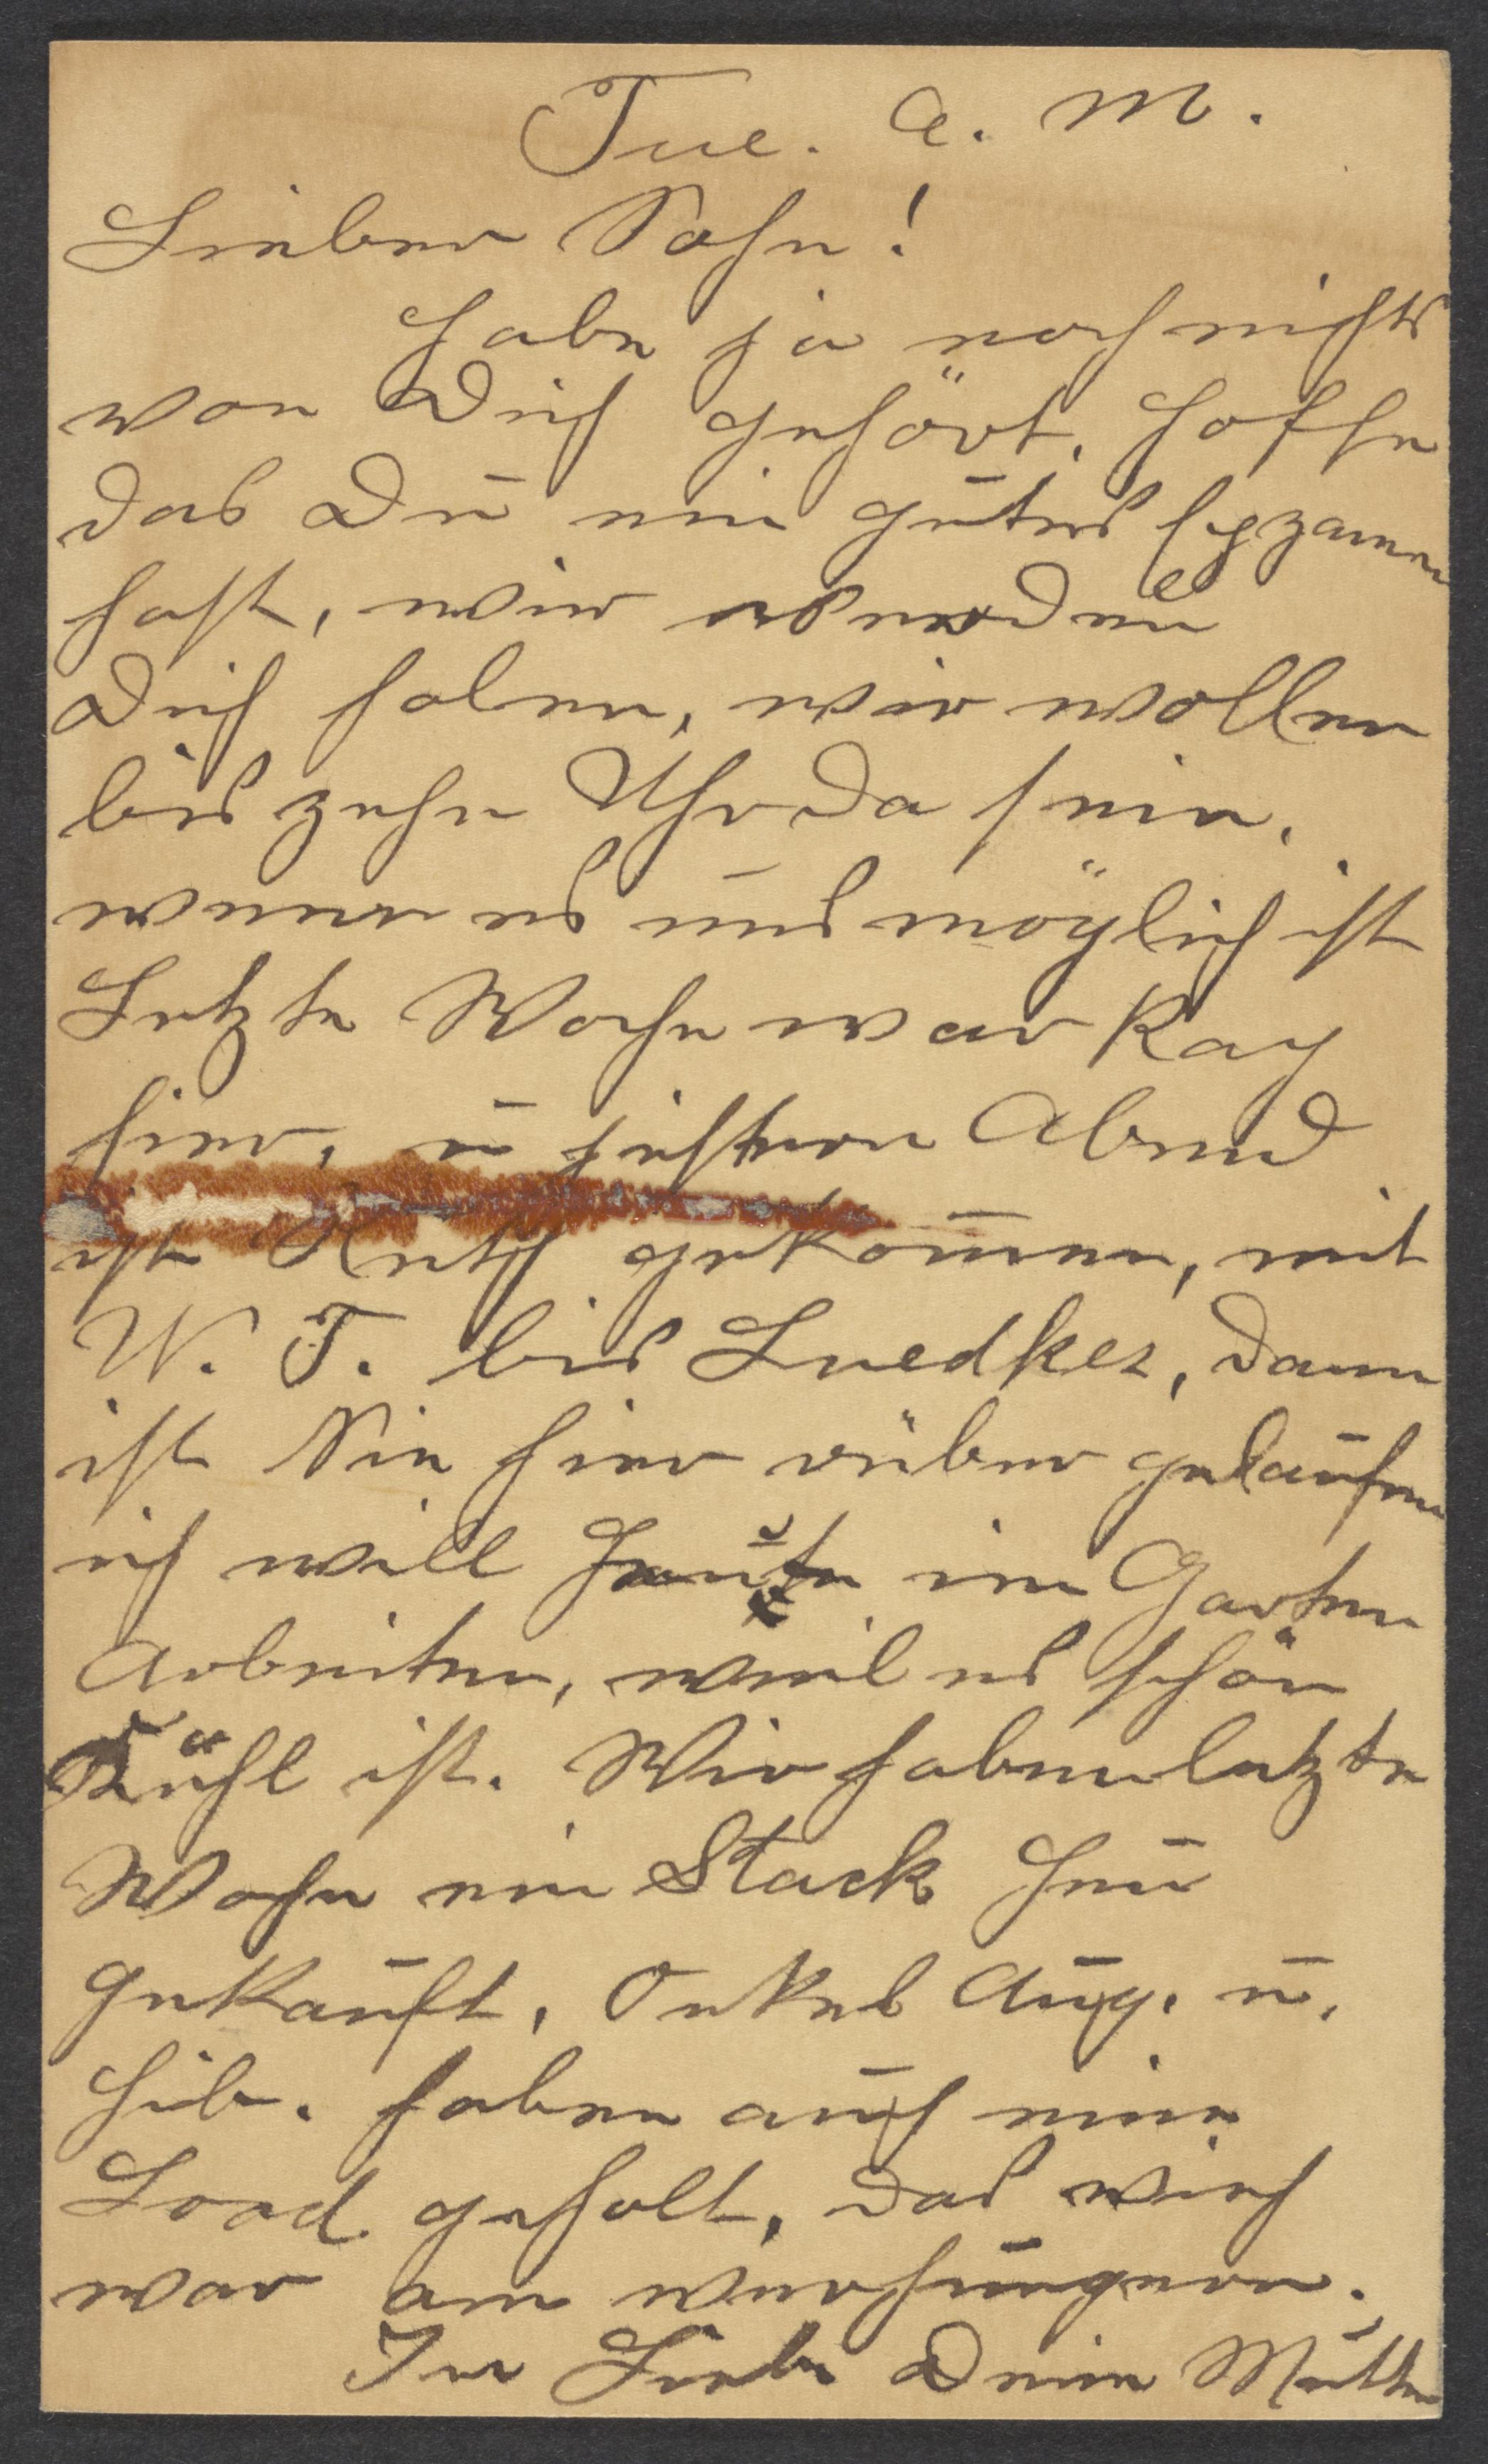 Tue. A. M.
Lieber Sohn!
Habe ja noch nichts
von Dich gehört. Hoffe
das Du ein gutes Egzamen
hast, wir werden
Dich holen, wir wollen
bis zehn Uhr da sein.
wenn es uns möglich ist
Letzte Woche war Ray
hier, u jestern Abend
ist Ruth gekommen, mit
W. T. bis Luedkes, dann
ist Sie hier rüber gelaufen
ich will Heute im Garten
Arbeiten, weil es schön
Kühl ist. Wir haben letzte
Woche ein Stack Heu
gekauft. Onkel Aug. u.
Hib. haben auch eine
Load geholt, das Vieh
war am verhungern.
In Liebe Deine Mutter